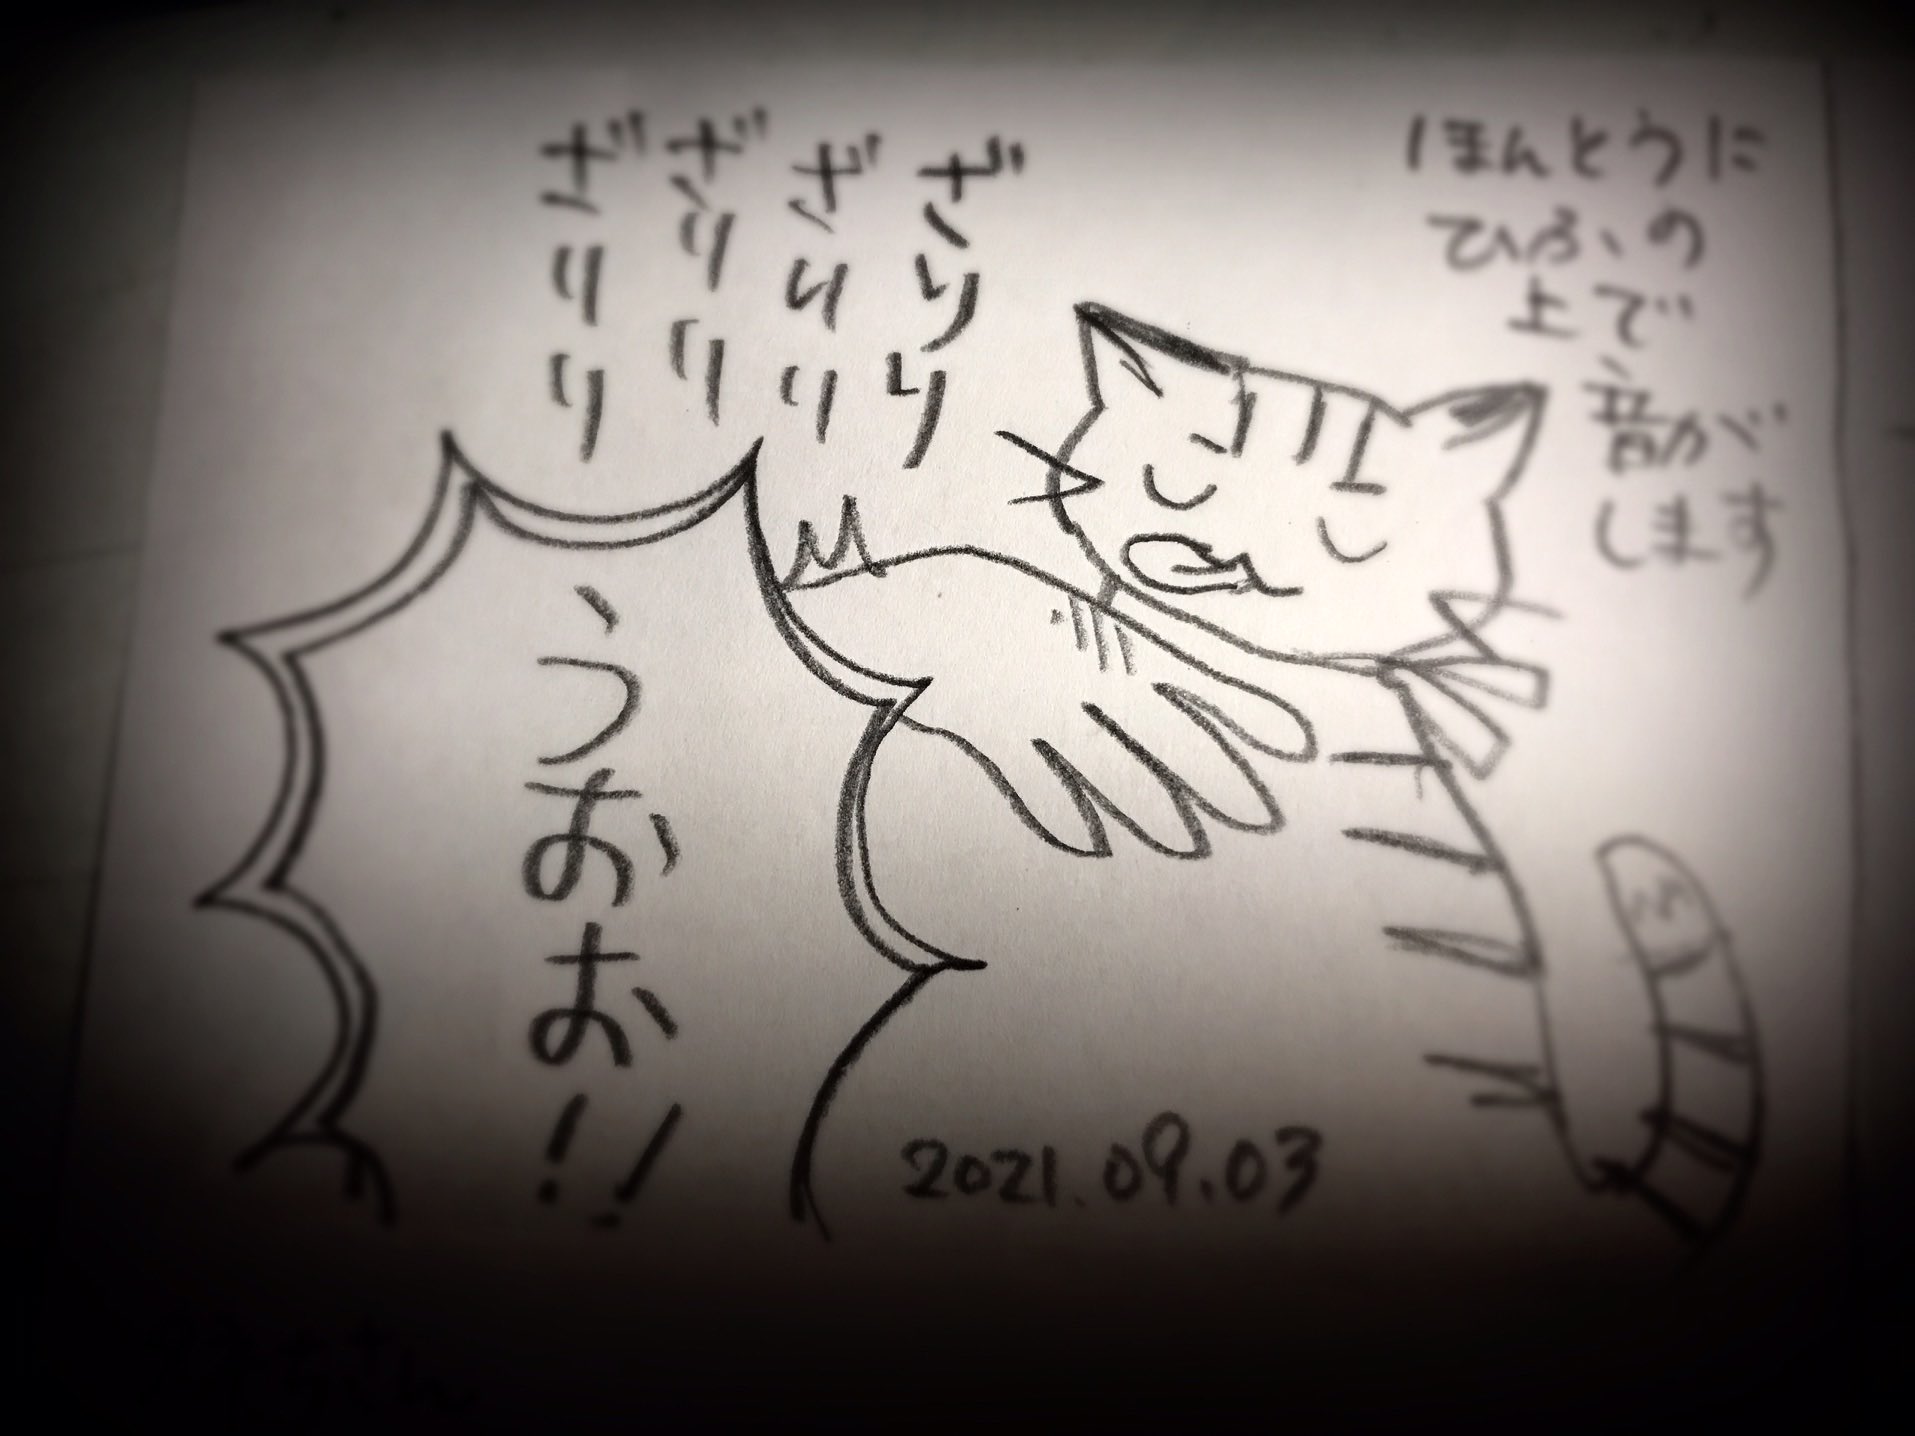 ほんとうに
ひふの
上で
音が
します
ざりり
ざりり
ざりり
ざりり
うおお!!
2021.09.03